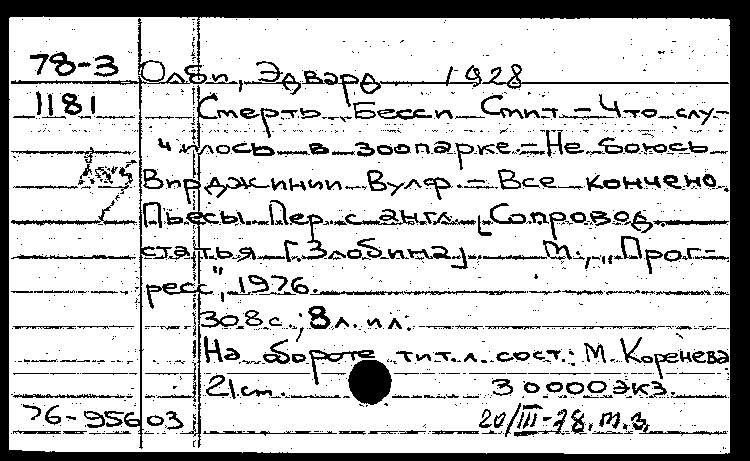 78-3 Олби, Эдвард 1928
1181 Смерть Бесси Смит – Что слу-
чилось в зоопарке – Не боюсь
Вирджинии Вулф. – Все кончено.
Пьесы. Пер. с англ. [Сопровод.
статья Г. Злобина]. М., „Прог-
ресс", 1976.
308 с.; 8 л. ил.
На обороте тит. л. сост.: М. Коренева
21 ст. 30000 экз.
76-95603 20/III-78. т. з.